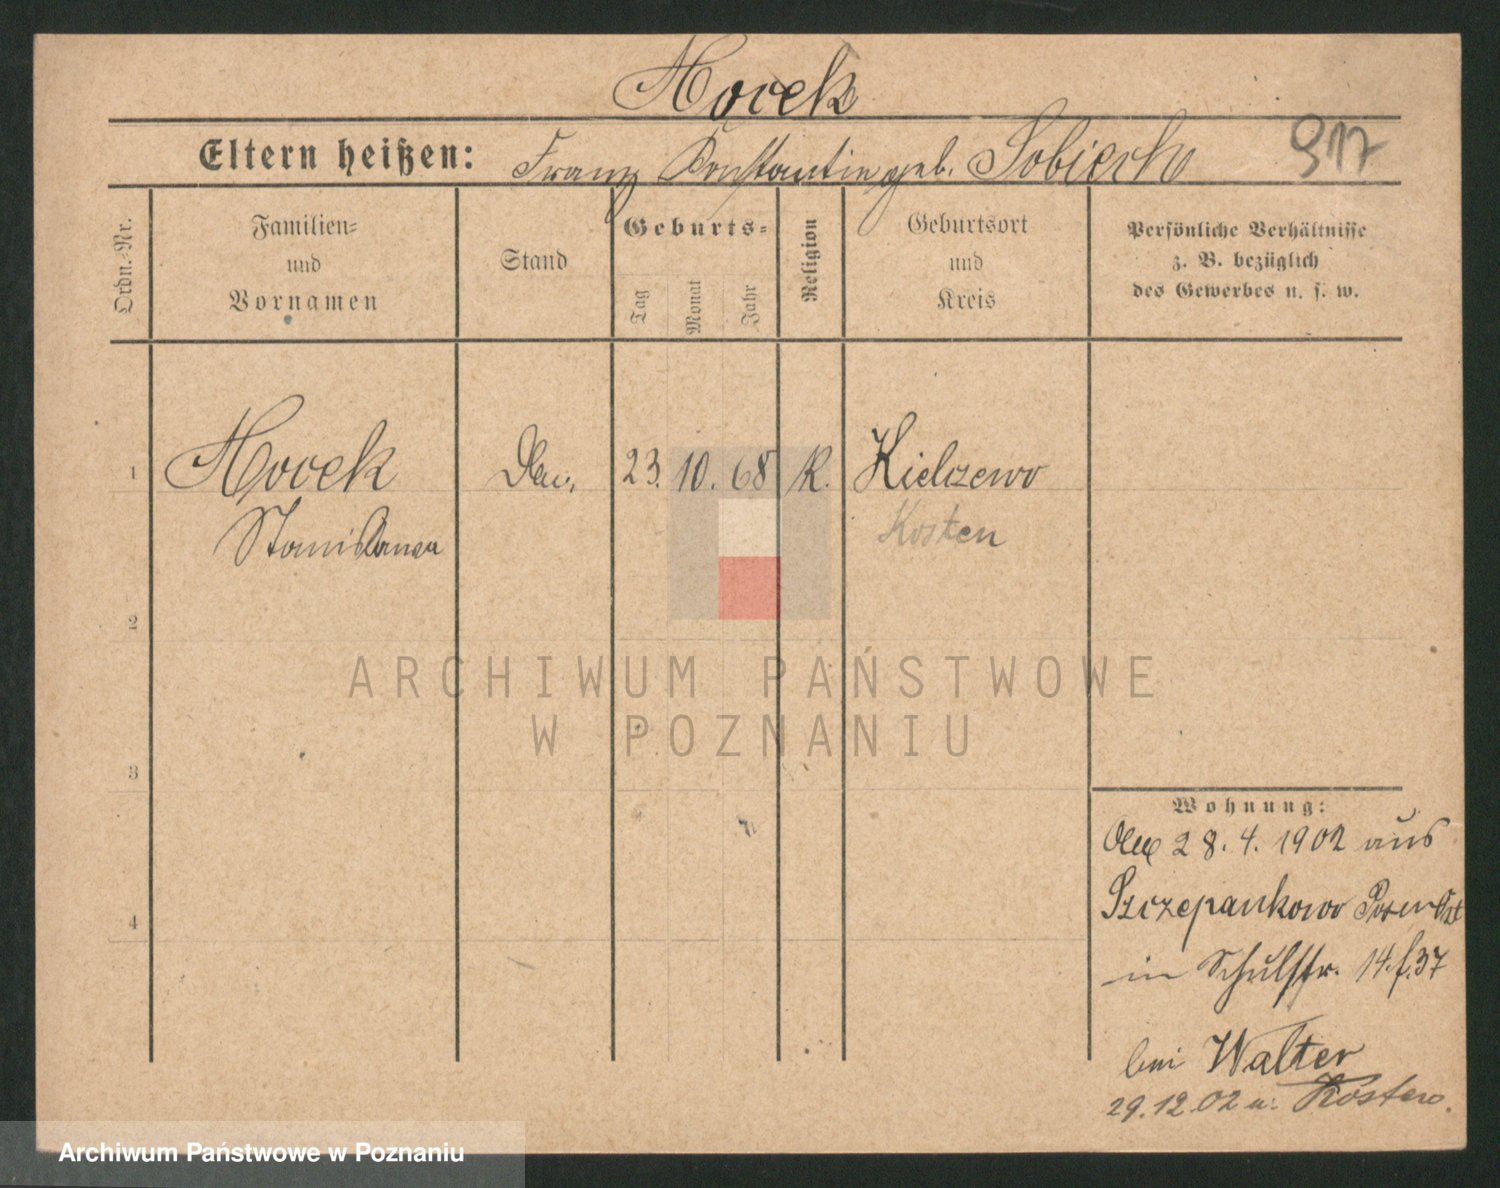 Hocek
Eltern heißen: Franz Konstantin geb. Sobierk
917
Ordn.-Nr.
Familien-
und
Vornamen
Stand
Geburts-
Tag
Monat
Jahr
Religion
Geburtsort
und
Kreis
Persönliche Verhältnisse
z. B. bezüglich
des Gewerbes u. s. w.
1 Hocek 23. 10. 68 K. Kielczewo
Stanislawa Kosten
2
ARCHIWUM PAŃSTWOWE
W POZNANIU
3
Wohnung:
28. 4. 1902 aus
4 Szczepankowo Posen Ost
in Schulstr. 14. f. 37
bei Walter
29.12.02 n. Kosten.
Archiwum Państwowe w Poznaniu